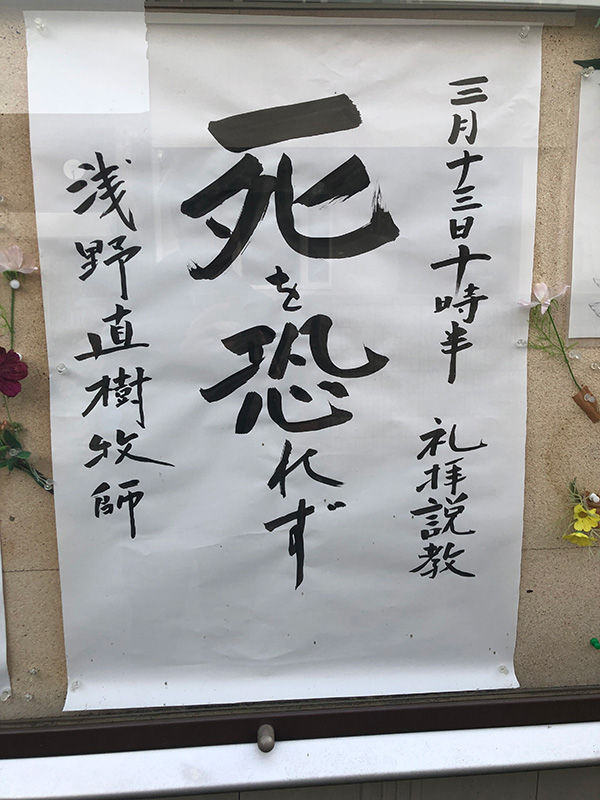 三月十三日十時半 礼拝説教
死を恐れず
浅野直樹牧師